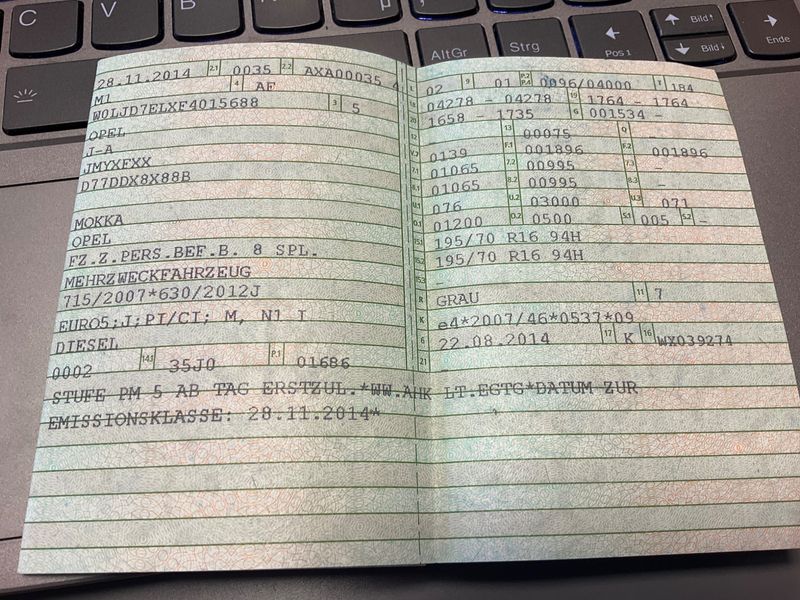 C
V
AltGr
Strg
←
Pos 1
↑ Bild↑
↓ Bild↓
→
Ende
28.11.2014 2.1 0035 2.2 AXA00035 4
M1 4 AF
W0LJD7ELXF4015688 3 5
OPEL
J-A
JMYXFXX
D77DDX8X88B
MOKKA
OPEL
FZ.Z.PERS.BEF.B. 8 SPL.
MEHRZWECKFAHRZEUG
715/2007*630/2012J
EURO5;J;PI/CI; M, N1 I
DIESEL
0002 14.1 35J0 P.1 01686
STUFE PM 5 AB TAG ERSTZUL.*WW.AHK LT.EGTG*DATUM ZUR
EMISSIONSKLASSE: 28.11.2014*
L 02 9 01 P.2 P.4 0096/04000 T 184
18 04278 - 04278 19 1764 - 1764
20 1658 - 1735 G 001534 -
12 - 13 00075 Q -
V.7 0139 F.1 001896 F.2 001896
7.1 01065 7.2 00995 7.3 -
8.1 01065 8.2 00995 8.3 -
U.1 076 U.2 03000 U.3 071
O.1 01200 O.2 0500 S.1 005 S.2 -
15.1 195/70 R16 94H
15.2 195/70 R16 94H
15.3 -
R GRAU 11 7
K e4*2007/46*0537*09
6 22.08.2014 17 K 16 WX039274
21 -